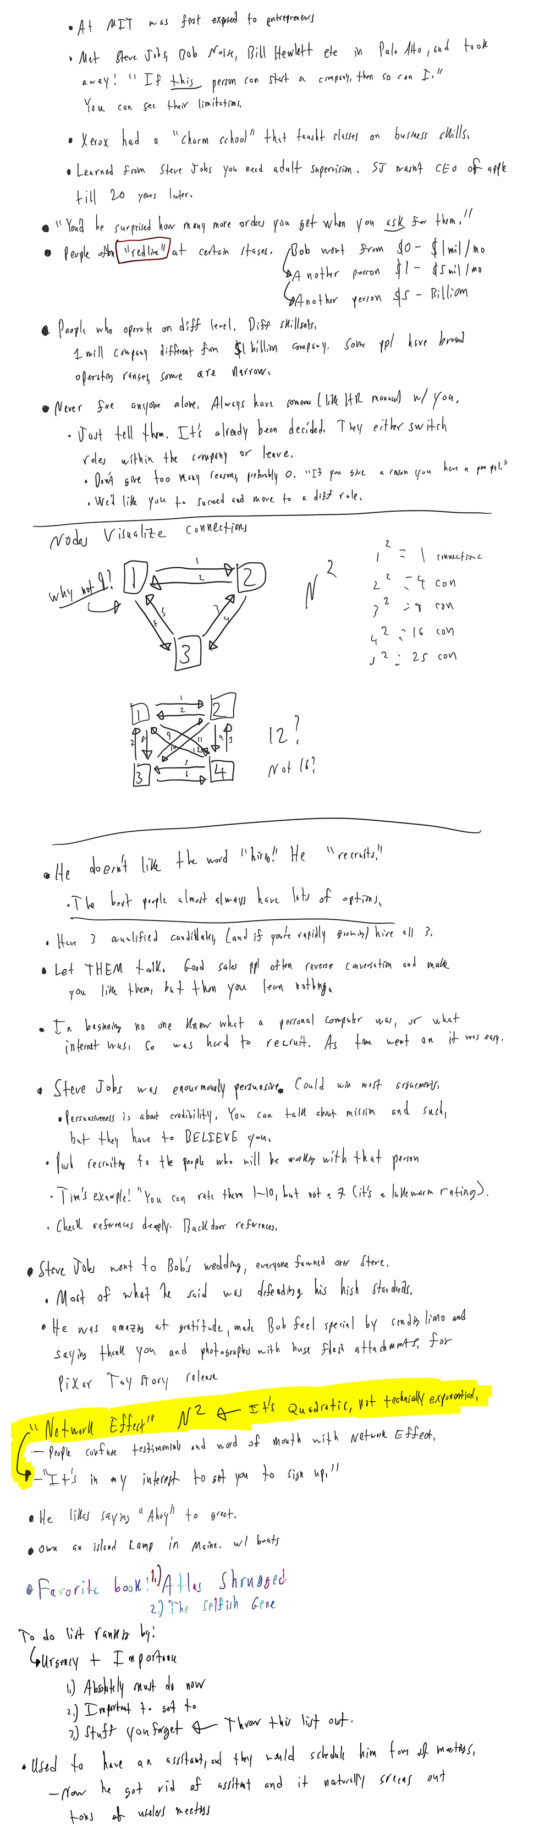 • At MIT was first exposed to entrepreneurs
• Met Steve Jobs, Bob Noise, Bill Hewlett etc in Palo Alto, and took
away: "If this person can start a company, then so can I."
You can see their limitations.
• Xerox had a "charm school" that taught classes on business skills.
• Learned from Steve Jobs you need adult supervision. SJ wasnt CEO of apple
till 20 years later.
• "You'd be surprised how many more orders you get when you ask for them."
• People often "redline" at certain stages. Bob went from $0 - $1mil/mo
Another person $1 - $5mil/mo
Another person $5 - Billion
• People who operate on diff level. Diff skillsets.
1 mill company different from $1 billion company. Some ppl have broad
operating ranges, some are narrow.
• Never fire anyone alone. Always have someone (like HR manager) w/ you.
• Just tell them. It's already been decided. They either switch
roles within the company or leave.
• Don't give too many reasons, preferably 0. "If you give a reason you have a
• We'd like you to succeed and move to a diff role.
Nodes Visualize connections
Why not 9?
1 2 3
1 2 3 4 5 6
N²
1² = 1 connections
2² = 4 con
3² = 9 con
4² = 16 con
5² = 25 con
1 2
3 4
12?
Not 16?
• He doesn't like the word "hiring" He "recruits."
• The best people almost always have lots of options.
• Have 3 qualified candidates, (and if you're rapidly growing) hire all 3.
• Let THEM talk. Good sales ppl often reverse conversation and make
you like them, but then you learn nothing.
• In beginning no one knew what a personal computer was, or what
internet was. So was hard to recruit. As time went on it was easy.
• Steve Jobs was enourmously persuasive. Could win most arguments.
• Persuasiveness is about credibility. You can talk about mission and such,
but they have to BELIEVE you.
• Push recruiting to the people who will be working with that person
• Tim's example: "You can rate them 1-10, but not a 7 (it's a lukewarm rating).
• Check references deeply. Backdoor references.
• Steve Jobs went to Bob's wedding, everyone fawned over Steve.
• Most of what he said was defending his high standards.
• He was amazing at gratitude, made Bob feel special by sending limo and
saying thank you and photographs with huge flash attachments, for
Pixar Toy Story release
"Network Effect" N² ← It's Quadratic, not technically exponential.
— People confuse testimonials and word of mouth with Network Effect.
— "It's in my interest to get you to sign up."
• He likes saying "Ahoy" to greet.
• Own an island Camp in Maine. w/ boats
• Favorite book: 1.) Atlas Shrugged
2.) The Selfish Gene
To do list ranking by:
Urgency + Importance
1.) Absolutely must do now
2.) Important to get to
3.) Stuff you forget ← Throw this list out.
• Used to have an assitant, and they would schedule him tons of meetings,
— Now he got rid of assitant and it naturally screens out
tons of useless meetings